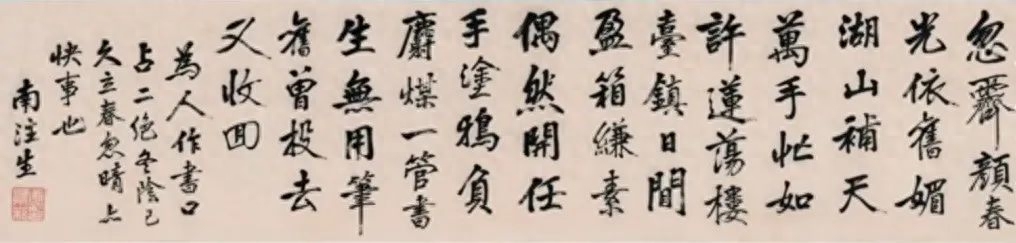 忽霽顏春
光依舊媚
湖山補天
萬手忙如
許蓮蕩樓
臺鎮日間
盈箱縑素
偶然開任
手塗鴉負
麝煤一管書
生無用筆
舊曾投去
又收回
為人作書口
占二絕冬陰已
久立春忽晴亦
快事也
南注生